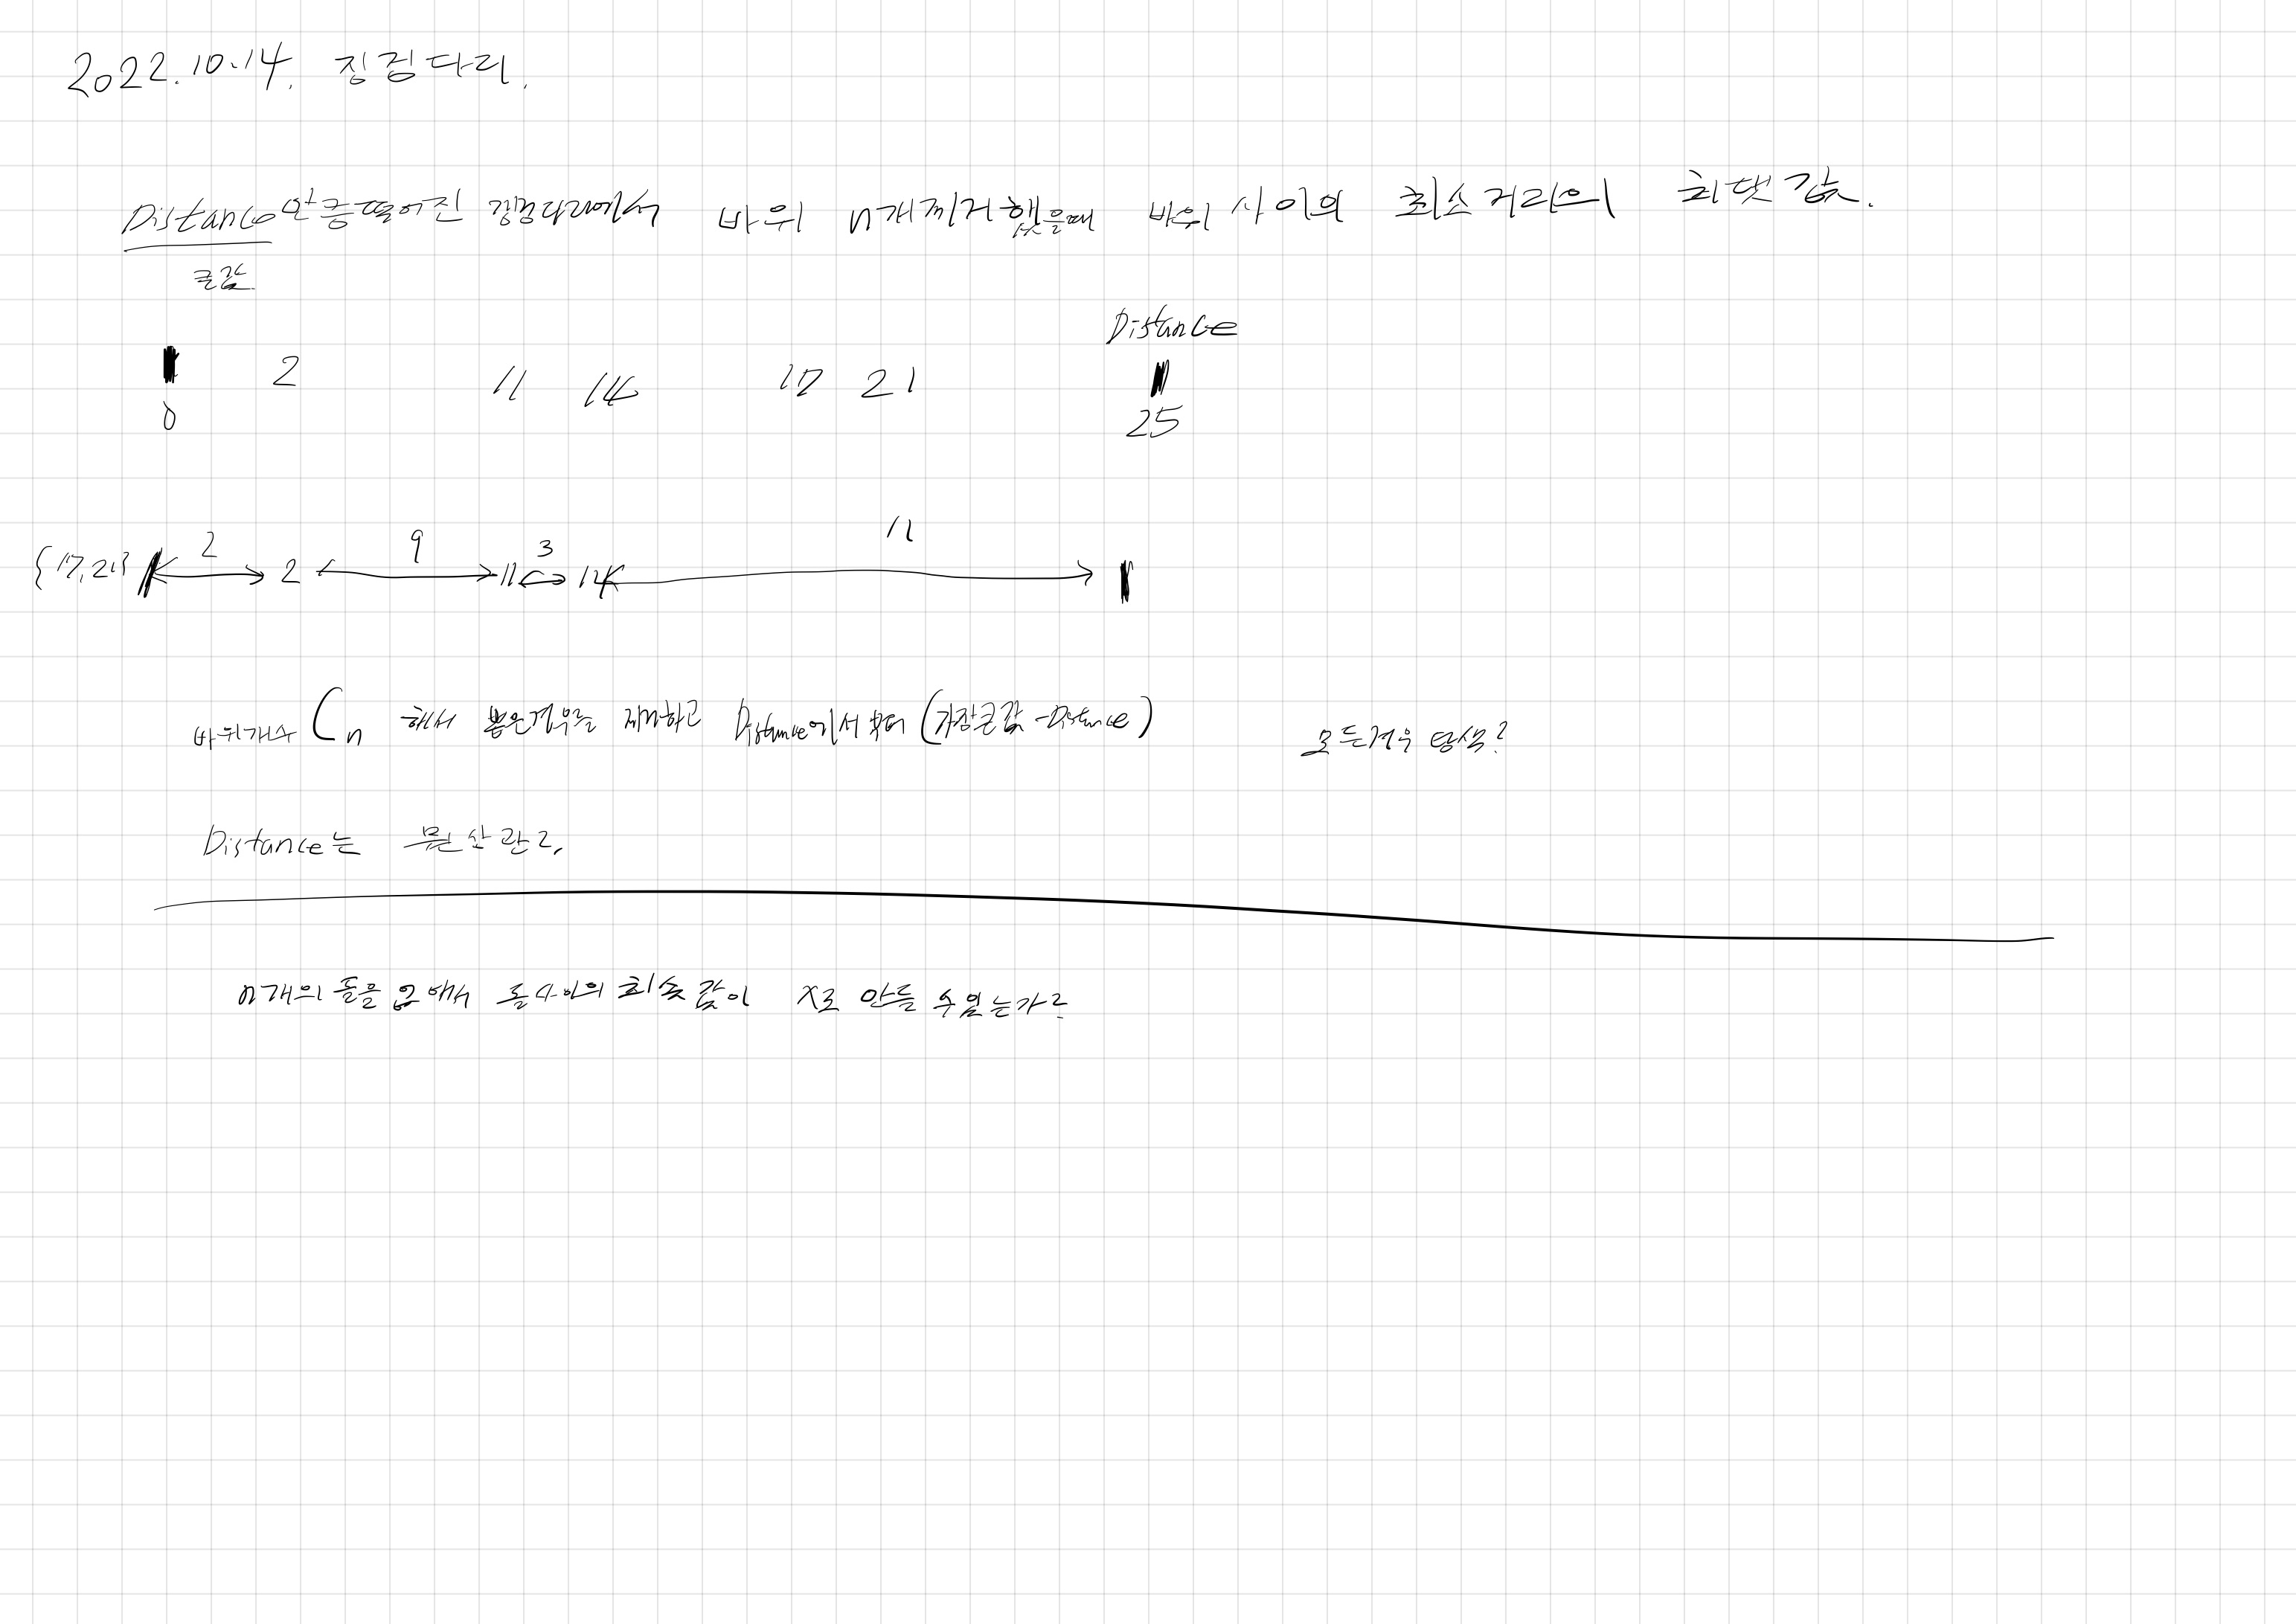 2022.10.14. 징검다리.
Distance 만큼떨어진 징검다리에서 바위 n개제거했을때 바위 사이의 최소거리의 최댓값.
큰값
Distance
2 11 14 17 21
0 25
2 9 3 11
{17,21} 2 11 14
바위개수 C n 해서 뽑은경우를 제거하고 Distance에서부터 (가장큰값-Distance) 모든경우 탐색?
Distance는 뭔상관?
n개의 돌을 없애서 돌사이의 최솟값이 X로 만들 수있는가?